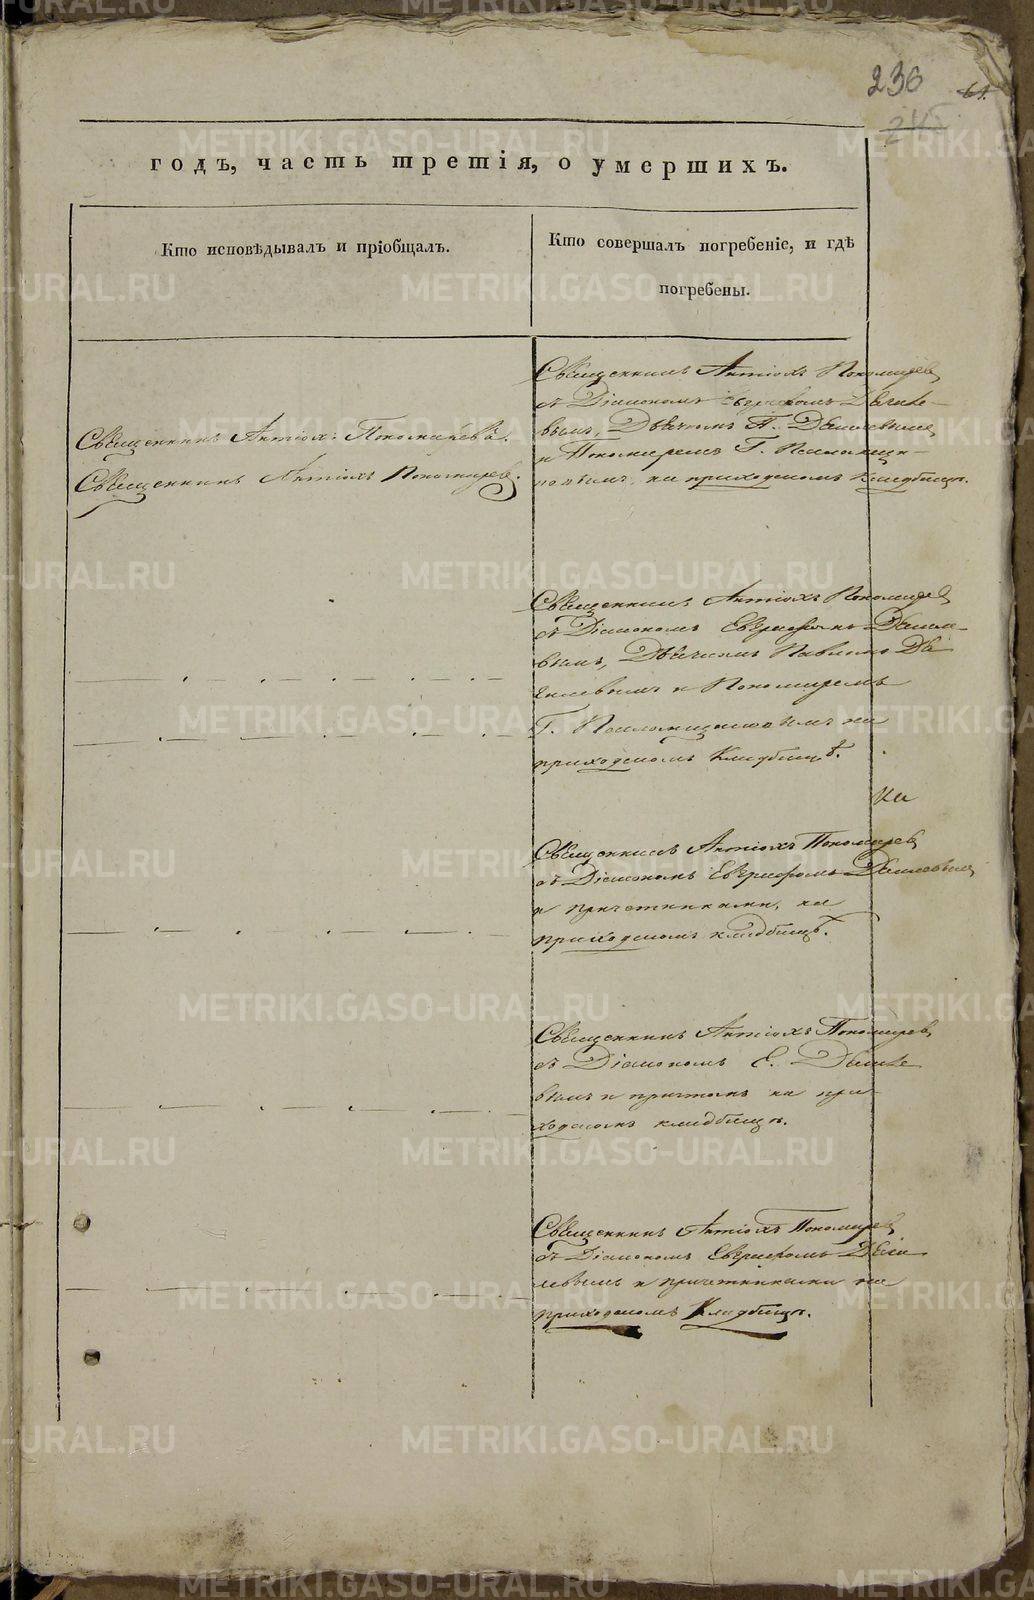 236
61.
245
годъ, часть третія, о умершихъ.
Кто исповѣдывалъ и пріобщалъ.
Кто совершалъ погребеніе, и гдѣ
погребены.
Священникъ Антіохъ Пономаревъ
съ Діакономъ
вымъ, Дьячкомъ П.
и Пономаремъ Г.
на приходскомъ кладбищѣ.
Священникъ Антіохъ Пономаревъ.
Священникъ Антіохъ Пономаревъ.
Священникъ Антіохъ Пономаревъ
съ Діакономъ
вымъ, Дьячкомъ Павломъ
и Пономаремъ
Г. на
приходскомъ кладбищѣ.
на
Священникъ Антіохъ Пономаревъ
съ Діакономъ
и причетниками, на
приходскомъ кладбищѣ.
Священникъ Антіохъ Пономаревъ
съ Діакономъ Е.
вымъ и причтомъ на при-
ходскомъ кладбищѣ.
Священникъ Антіохъ Пономаревъ
съ Діакономъ
левымъ и причетниками на
приходскомъ кладбищѣ.
METRIKI.GASO-URAL.RU